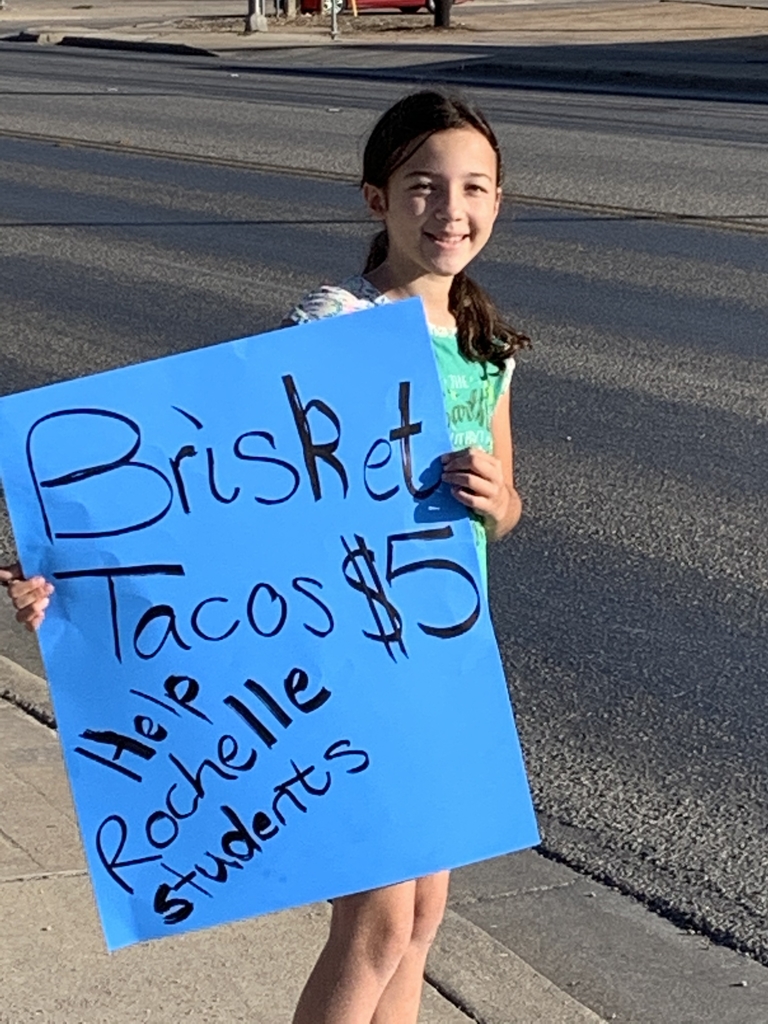 Brisket
Tacos $5
Help
Rochelle
students
THE